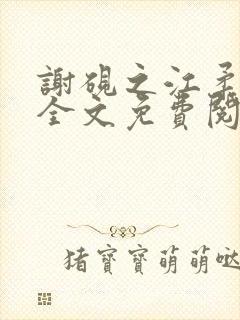 謝硯之江柔
全文免費閱
猪寶寶萌萌噠